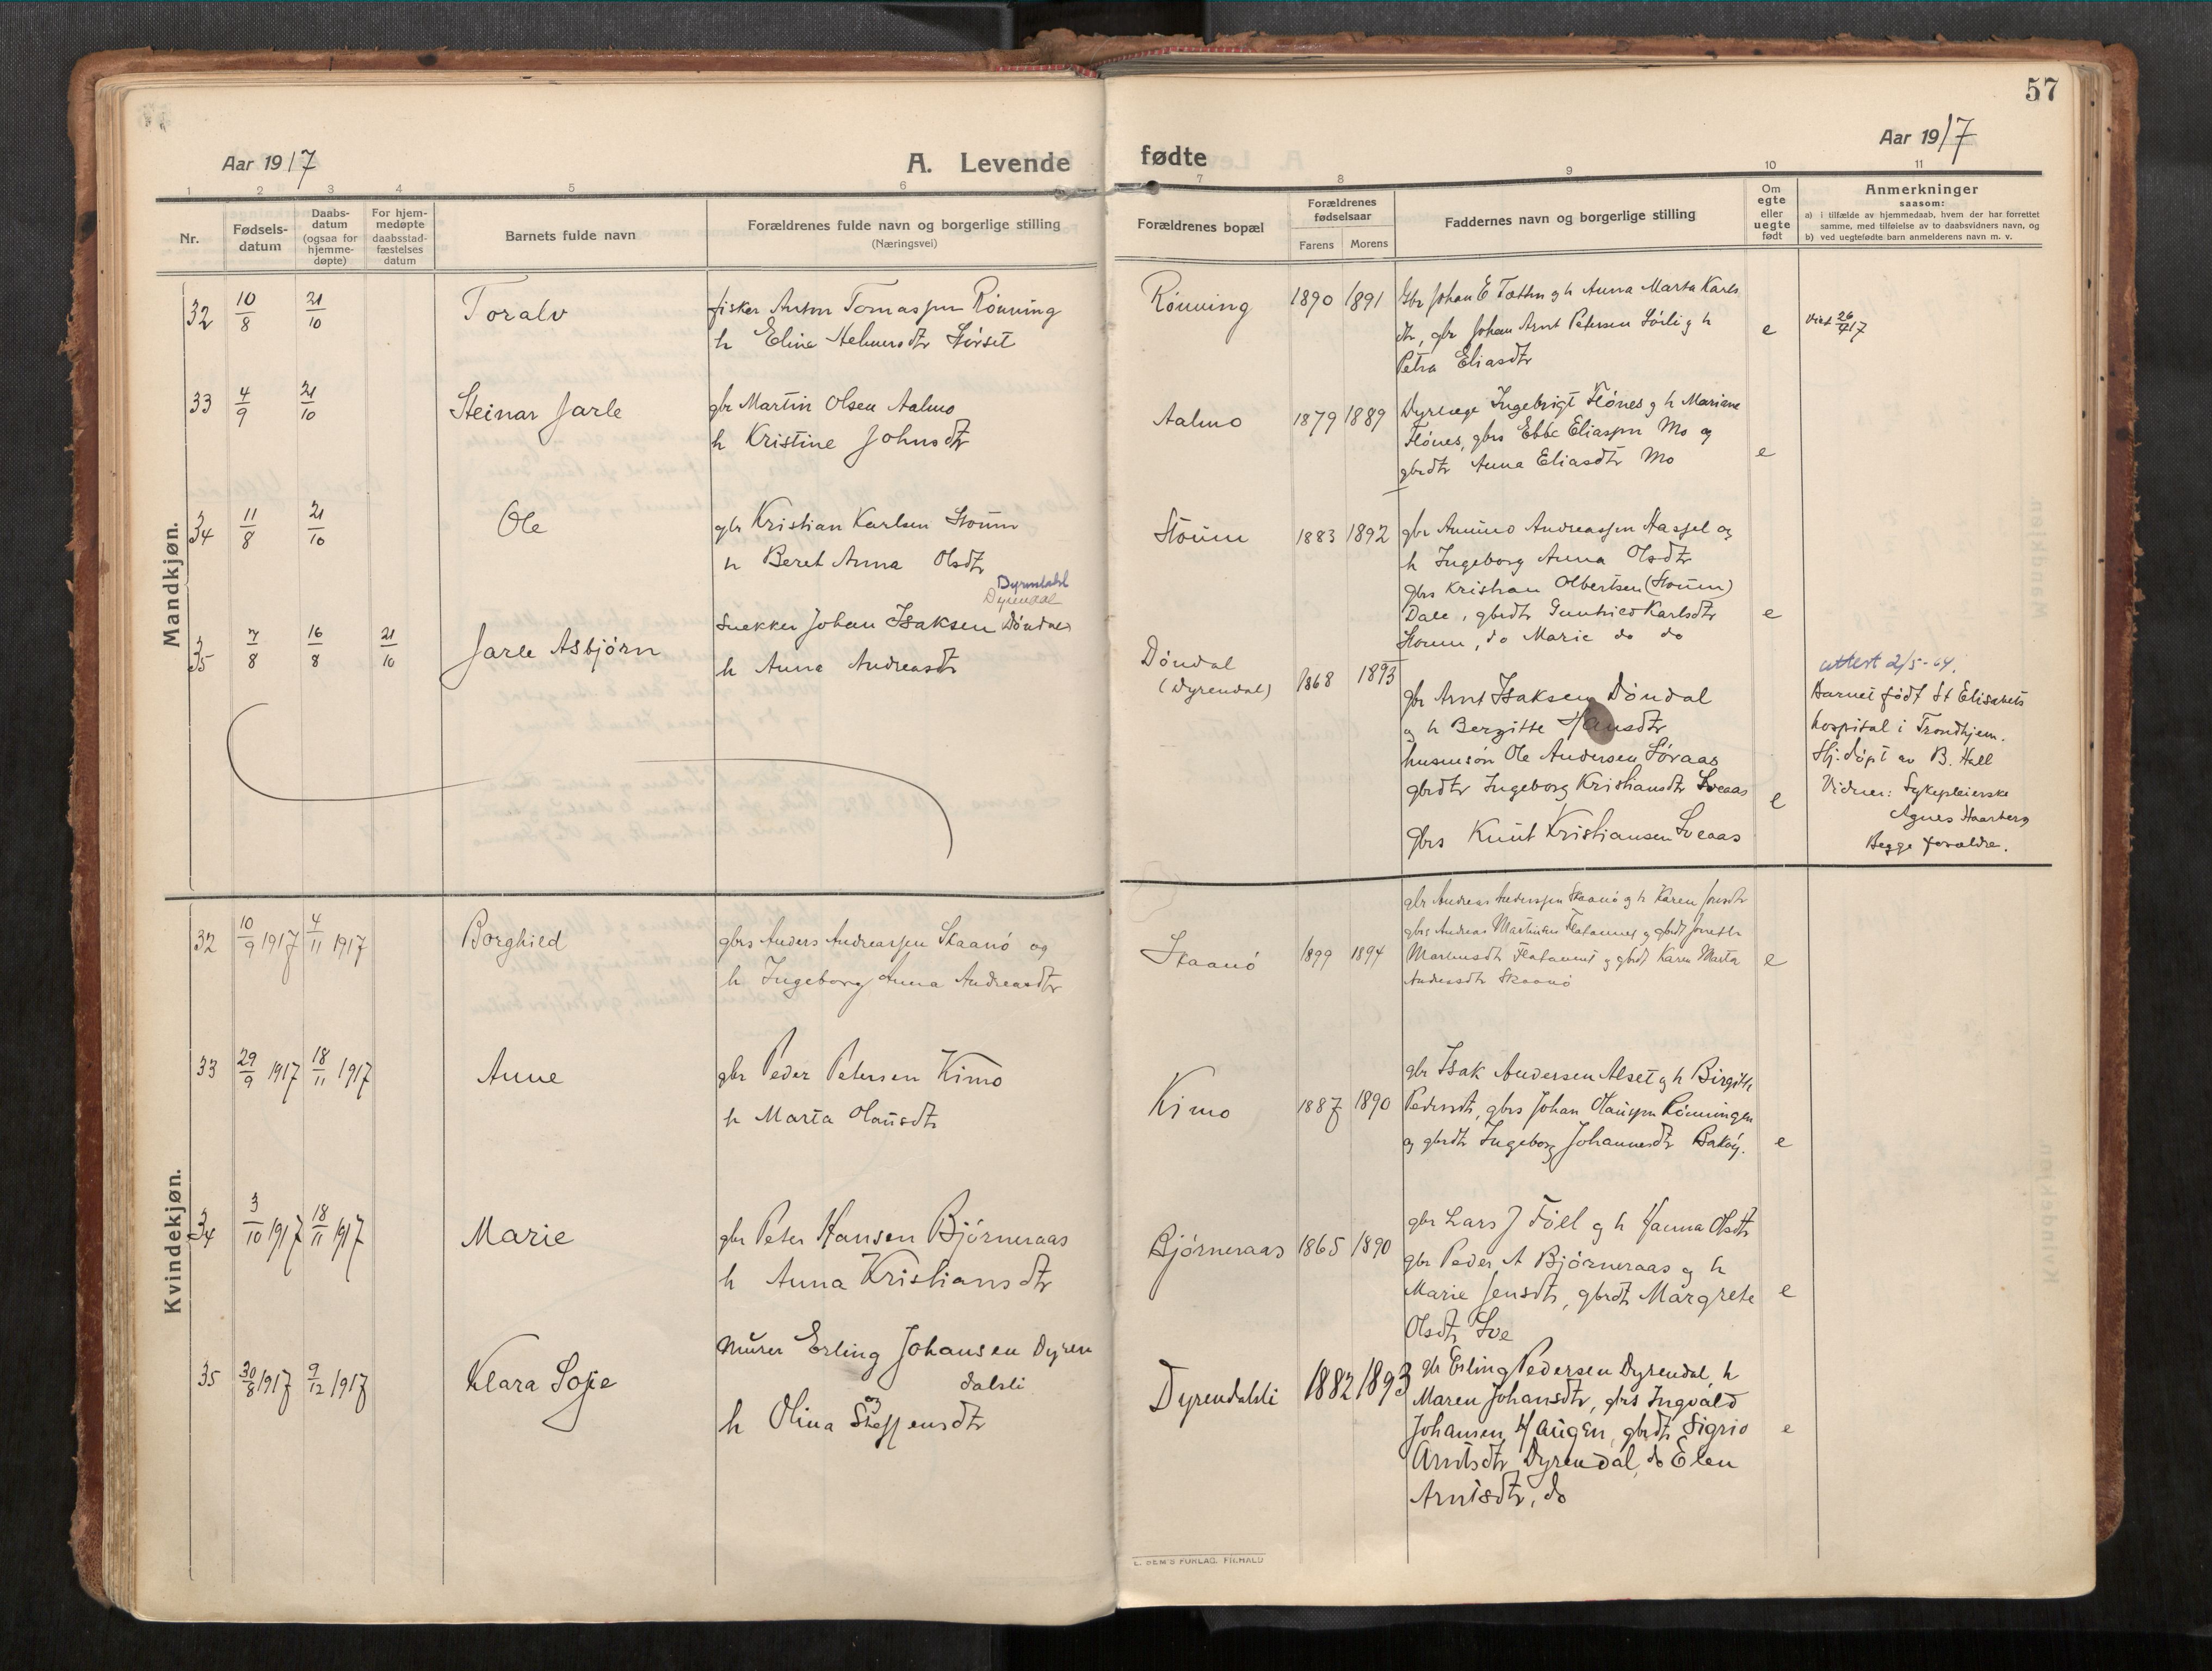 57
Aar 1917
A. Levende
fødte
Aar 1917
1 2 3 4 5 6 7 8 9 10 11
Nr.
Fødsels-
datum
Daabs-
datum
(ogsaa for
hjemme-
døpte)
For hjem-
medøpte
daabsstad-
fæstelses
datum
Barnets fulde navn
Forældrenes fulde navn og borgerlige stilling
(Næringsvei)
Forældrenes bopæl
Forældrenes
fødselsaar
Farens Morens
Faddernes navn og borgerlige stilling
Om
egte
eller
uegte
født
Anmerkninger
saasom:
a) i tilfælde av hjemmedaab, hvem der har forrettet
samme, med tilføielse av to daabsvidners navn, og
b) ved uegtefødte barn anmelderens navn m. v.
Mandkjøn.
32 10/8 21/10 Toralv
fisker Anton Tomassen Rönning
h Elina Helmersdtr Störset
Rönning 1890 1891
Gbr Johan E Tætten g h Anna Marta Karls
dtr, gbr Johan Arnt Petersen Sörli g h
Petra Eliasdtr
e
26/4 17
33 4/9 21/10 Steinar Jarle
gbr Martin Olsen Aalmo
h Kristine Johnsdtr
Aalmo 1879 1889
Dyrlæge Ingebrigt Flönes g h Mariane
Flönes, gbrs Ebbe Eliassen Mo og
gbrdtr Anna Eliasdtr Mo
e
34 11/8 21/10 Ole
gbr Kristian Karlsen Stounn
h Beret Anna Olsdtr
Stounn 1883 1892
gbr Andreassen Hassel og
h Ingeborg Anna Olsdtr
gbrs Kristian Olbertsen (Stounn)
Dale, gbrdtr Karlsdtr
Stounn, do Marie do do
e
Dyrendal
Dyrendal
35 7/8 16/8 21/10 Jarle Asbjörn
Snekker Johan Isaksen Döndal
h Anna Andreasdtr
Döndal
(Dyrendal)
1868 1893
gbr Arnt Isaksen Döndal
og h Bergitte Hansdtr
husmsön Ole Andersen Söraas
gbrdtr Ingeborg Kristiansdtr Sveaas
gbrs Knut Kristiansen Sveaas
e
uttest 2/5-64.
Barnet född St Elisabets
hospital i Trondhjem.
Hj.döpt av B. Hall
Vidner: Sykepleierske
Agnes Haarberg
Begge forældre.
Kvindekjøn.
32 10/9 1917 4/11 1917 Borghild
gbrs Anders Andreassen Skaanö og
h Ingeborg Anna Andreasdtr
Skaanö 1899 1894
gbr Andreas Anderssen Skaanö g h Karen Jonsdtr
gbrs Andreas Martinsen g gbrdt
Martinsdtr g gbrdt Karen Marta
Andersdtr Skaanö
e
33 29/9 1917 18/11 1917 Anne
gbr Peder Petersen Kimo
h Marta Olausdtr
Kimo 1887 1890
gbr Isak Andersen Alset g h Birgitte
Pedersdtr, gbrs Johan Olaussen Rönningen
og gbrdtr Ingeborg Johannesdtr Baköy.
e
34 3/10 1917 18/11 1917 Marie
gbr Peter Hansen Björneraas
h Anna Kristiansdtr
Björneraas 1865 1890
gbr Lars J Föll g h Hanna Olsdtr
gbr Peder A Björneraas og h
Marie Jensdtr, gbrdtr Margrete
Olsdtr Sve
e
35 30/8 1917 9/12 1917 Klara Sofie
Murer Erling Johansen Dyren
dalsli
h Olina Steffensdtr
Dyrendalsli 1882 1893
gbr Erling Pedersen Dyrendal, h
Maren Johansdtr, gbrs Ingvald
Johansen Haugen, gbrdtr Sigrid
Arntsdtr Dyrendal, do Elen
Arntsdtr, do
e
E. SEM'S FORLAG, F.HALD